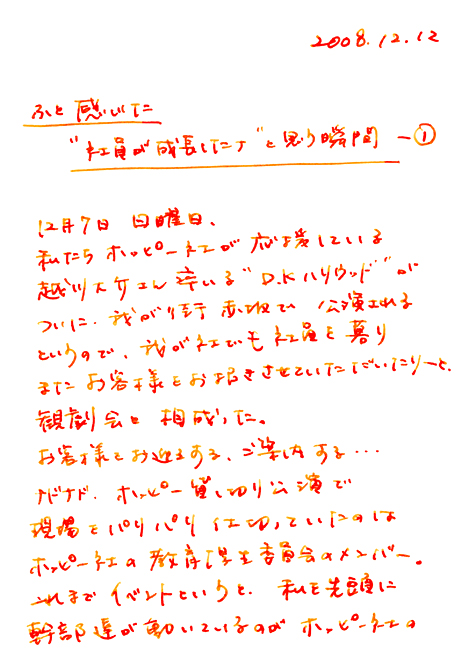 2008.12.12
ふと感じた
"社員が成長したナ"と思う瞬間 ー①
12月7日 日曜日、
私たちホッピー社が応援している
越川大介さん率いる"D.Kハリウッド"が
ついに、我が街 赤坂で 公演される
というので、我が社でも社員を募り
またお客様をお招きさせていただいたりーと、
観劇会と相成った。
お客様をお迎えする、ご案内する…
ナドナド、ホッピー貸し切り公演で
現場をバリバリ仕切っていたのは
ホッピー社の教育厚生委員会のメンバー。
これまでイベントというと、私を先頭に
幹部達が動いているのがホッピー社の